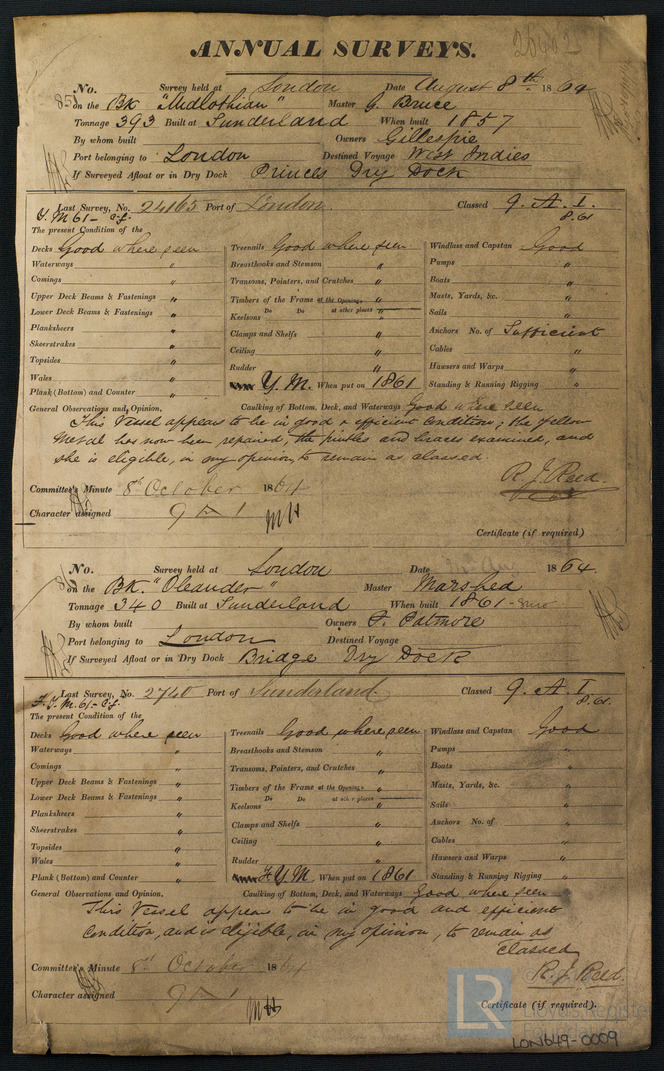 ANNUAL SURVEYS.
No. Survey held at London Date August 8th 1864
85 on the Bk "Midlothian" Master G. Bruce
Tonnage 393 Built at Sunderland When built 1857
By whom built Owners Gillespie
Port belonging to London Destined Voyage West Indies
If Surveyed Afloat or in Dry Dock Princes Dry Dock
Last Survey, No. 24165 Port of London Classed 9. A. I.
Y.M 61 - c.f. 8.61
The present Condition of the
Decks Good where seen Treenails Good where seen Windlass and Capstan Good
Waterways " Breasthooks and Stemson " Pumps "
Comings " Transoms, Pointers, and Crutches " Boats "
Upper Deck Beams & Fastenings " Timbers of the Frame at the Openings " Masts, Yards, &c. "
Lower Deck Beams & Fastenings " Do Do at other places Sails "
Planksheers " Keelsons " Anchors No. of Sufficient
Sheerstrakes " Clamps and Shelfs " Cables "
Topsides " Ceiling " Hawsers and Warps "
Wales " Rudder " Standing & Running Rigging "
Plank (Bottom) and Counter " Y. M. When put on 1861
General Observations and Opinion, Caulking of Bottom, Deck, and Waterways Good where seen
This Vessel appears to be in good & efficient Condition; the yellow
Metal has now been repaired, the pintles and braces examined, and
she is eligible, in my opinion, to remain as classed.
R. J. Reed.
Committee's Minute 8th October 1864
Character assigned 9 A 1
Certificate (if required)
No. Survey held at London Date 1864.
on the Bk. "Oleander" Master
Tonnage 340 Built at Sunderland When built 1861
By whom built Owners
Port belonging to London Destined Voyage
If Surveyed Afloat or in Dry Dock Bridge Dry Dock
Last Survey, No. 2740 Port of Sunderland Classed 9. A. I
F.Y.M. 61 - c.f. 8.61.
The present Condition of the
Decks Good where seen Treenails Good where seen Windlass and Capstan Good
Waterways " Breasthooks and Stemson " Pumps "
Comings " Transoms, Pointers, and Crutches " Boats "
Upper Deck Beams & Fastenings " Timbers of the Frame at the Openings " Masts, Yards, &c. "
Lower Deck Beams & Fastenings " Do Do at other places Sails "
Planksheers " Keelsons " Anchors No. of "
Sheerstrakes " Clamps and Shelfs " Cables "
Topsides " Ceiling " Hawsers and Warps "
Wales " Rudder " Standing & Running Rigging "
Plank (Bottom) and Counter " F. Y. M. When put on 1861
General Observations and Opinion, Caulking of Bottom, Deck, and Waterways Good where seen
This Vessel appears to be in good and efficient
Condition, and is eligible, in my opinion, to remain as
Classed
R. J. Reed.
Committee's Minute 8th October 1864
Character assigned 9 A 1
Certificate (if required).
LR Lloyd's Register
Foundation
LON649-0009